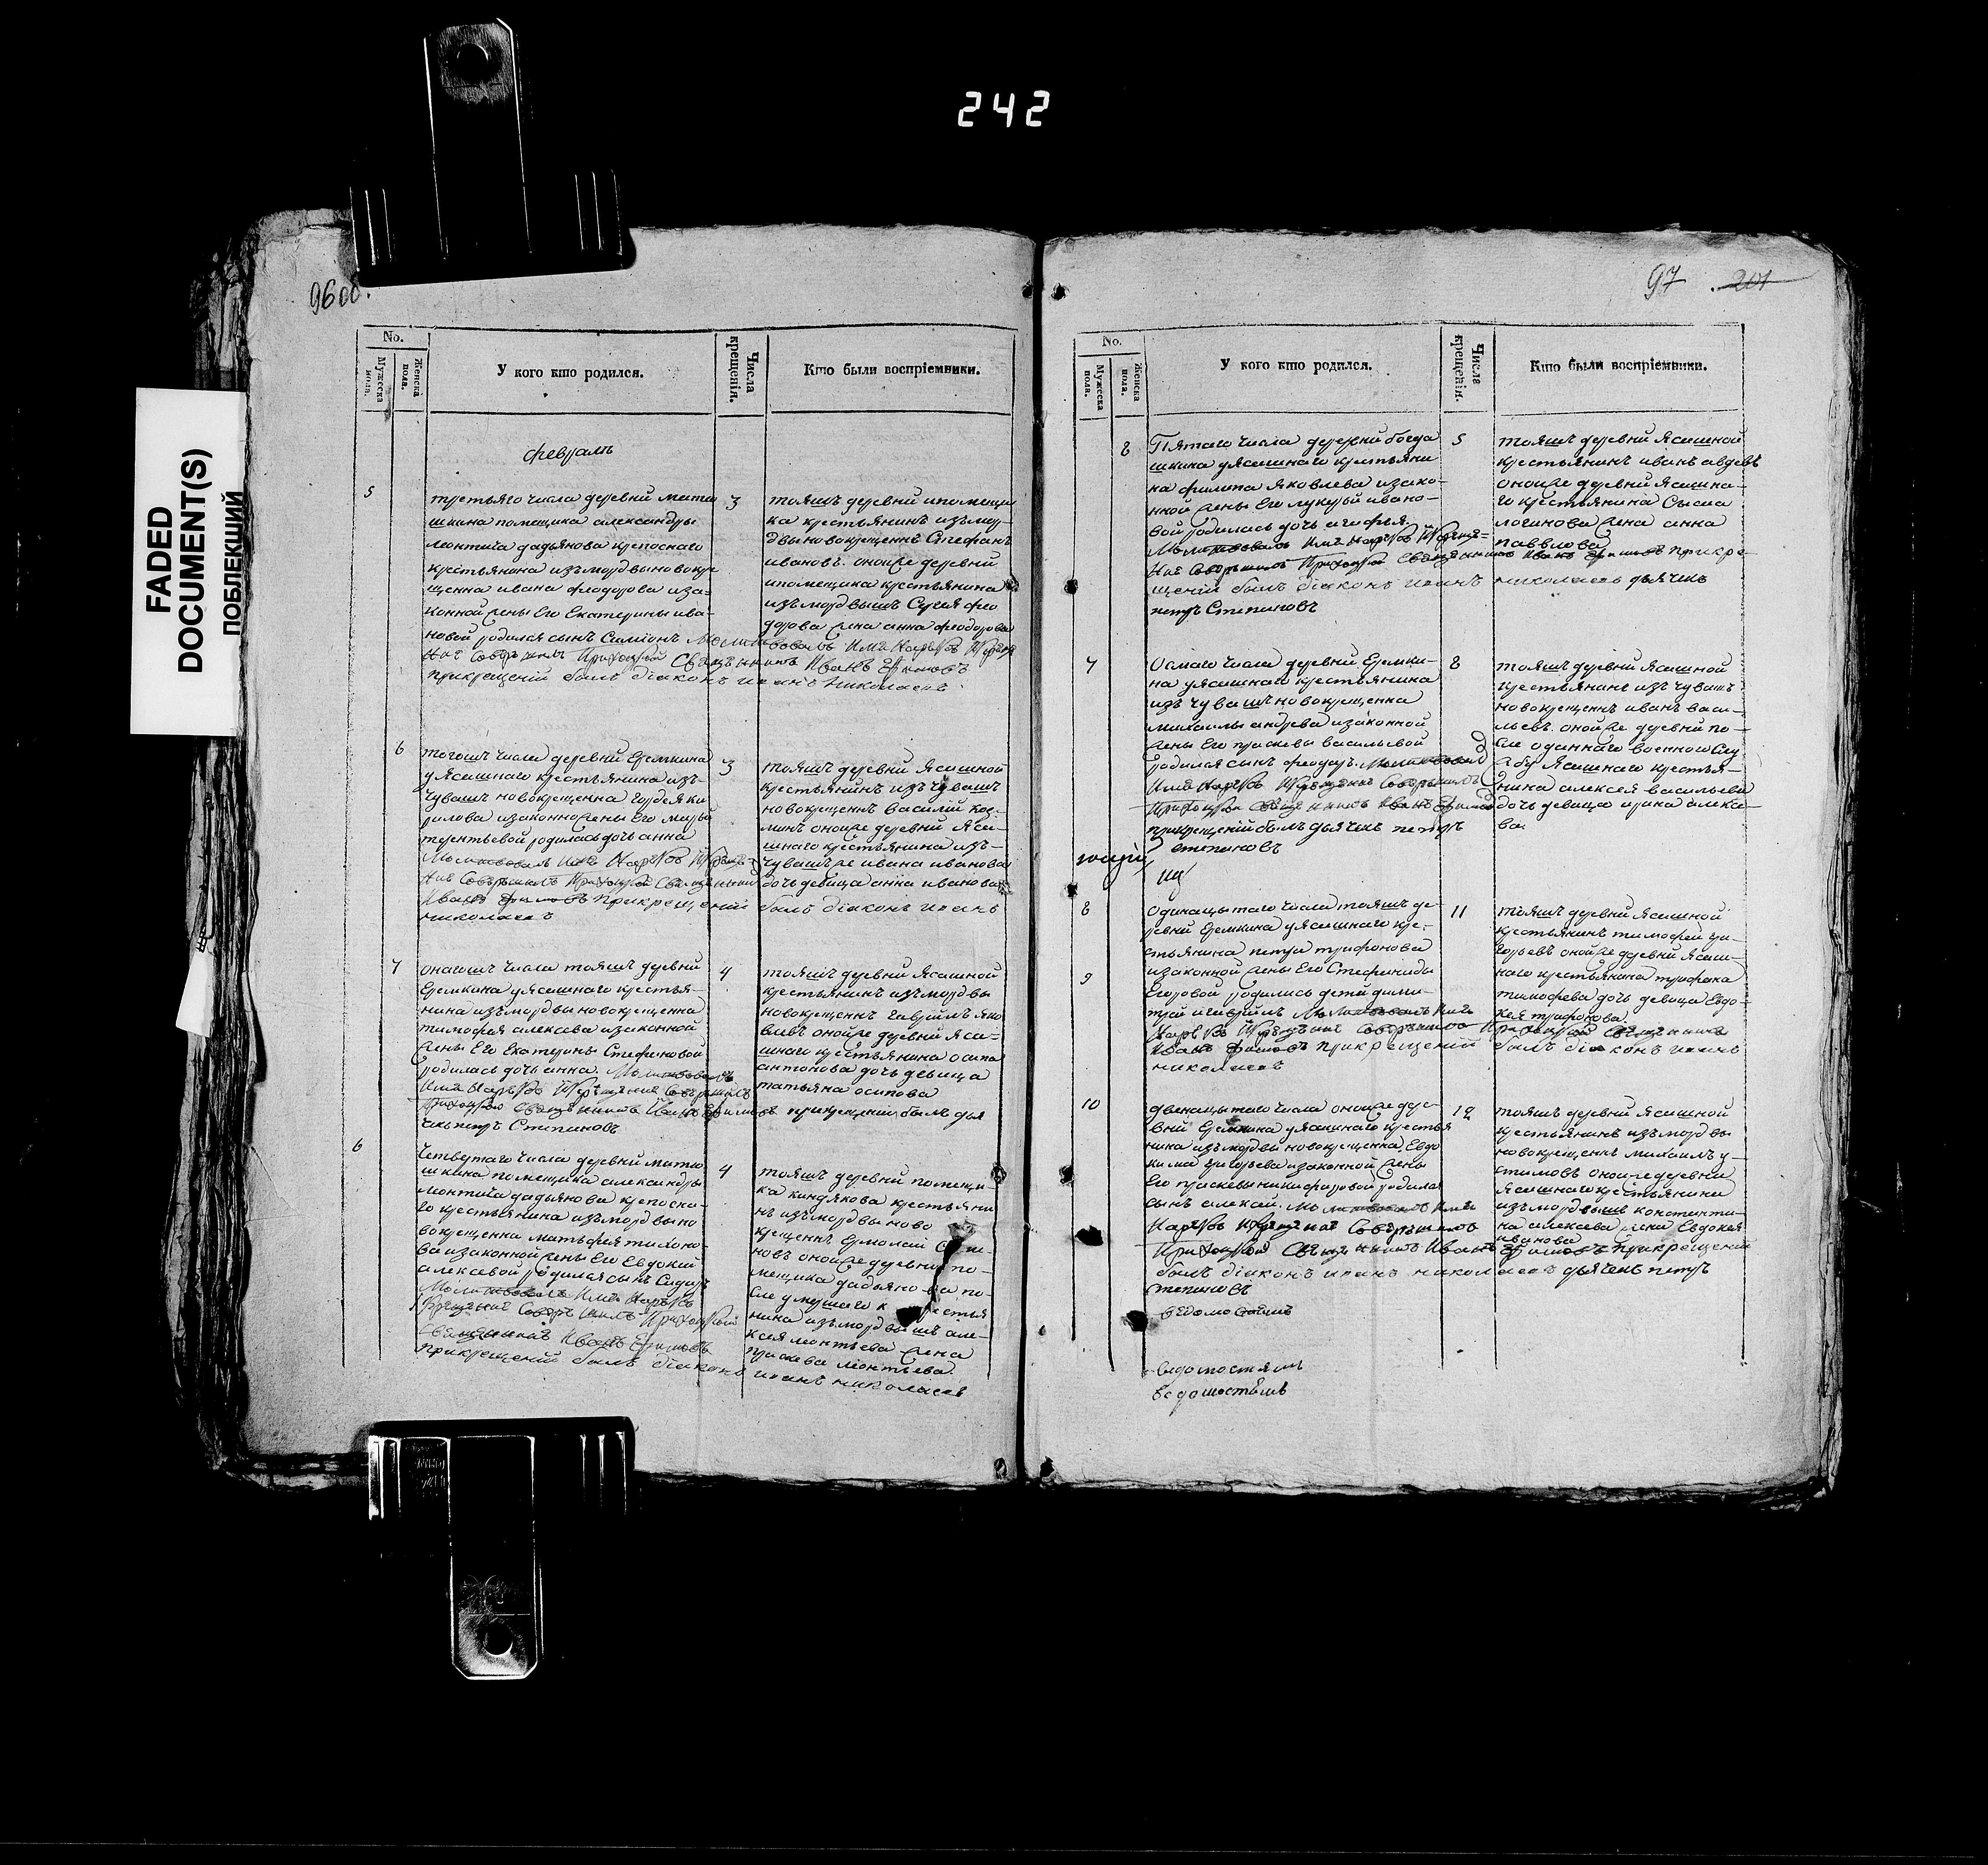 242
FADED
DOCUMENT(S)
ПОБЛЕКШИЙ
96 об.
No.
Мужеска пола.
Женска пола.
У кого кто родился.
Числа крещенія.
Кто были воспріемники.
февраль
5
третьяго числа деревни матю
шкина помещика александры
леонтича дадьянова крепоснаго
крестьянина изъ мордвы новокре
щенна ивана феодорова иза-
конной жены Его Екатерины ива-
новой родился сынъ Симионъ Молитвовалъ Имя Нарѣков Икрещ
Ние Совершилъ Приходской Священникъ Иванъ Ефимовъ
прикрещеній былъ діаконъ иванъ николаевъ
3
тояжъ деревни ипомещи
ка крестьянинъ изъ мор-
двы новокрещенъ Стефанъ
ивановъ. оной же деревни
ипомещика крестьянина
изъ мордвы жъ Сергея фео
дорова жена анна феодорова
6
тогожъ числа деревни Еремкина
у Ясашнаго крестьянина изъ-
чувашъ новокрещенна гордея ки
рилова изаконной жены Его марьи
терентьевой родилась дочь анна
Молитвовалъ Имя Нарѣков Икрещ-
Ние Совершилъ Приходской Священникъ
Иванъ Ефимовъ прикрещеній былъ діаконъ иванъ
николаевъ
3
тояжъ деревни Ясашной
крестьянинъ изъ чувашъ
новокрещенъ василий коз-
минъ оной же деревни Яса-
шнаго крестьянина изъ-
чувашъ же ивана иванова
дочь девица анна иванова
7
онагожъ числа тояжъ деревни
Еремкина у Ясашнаго крестья-
нина изъ мордвы новокрещенна
тимофея алексева изаконной
жены Его Екатерины Стефановой
родилась дочь анна. Молитвовалъ
Имя Нарѣков Икрещение Совершилъ
Приходской Священникъ Иванъ Ефимовъ прикрещеніи былъ дья
чекъ петръ Степановъ
4
тояжъ деревни Ясашной
крестьянинъ изъ мордвы
новокрещенъ гаврійлъ яко
влевъ оной же деревни Яса-
шнаго крестьянина осипа
антонова дочь девица
татьяна осипова
6
Четвертаго числа деревни матю
шкина помещика александры
леонтича дадьянова крепосна-
го крестьянина изъ мордвы но
вокрещенна матьфея тихоно-
ва изаконной жены Его Евдокии
алексевой родился сынъ Сидоръ
Молитвовалъ Имя Нарѣков
Икрещение Совершилъ Приходской
Священникъ Иванъ Ефимовъ
прикрещеній былъ діаконъ иванъ николаевъ
4
тояжъ деревни помещи-
ка киндякова крестьяни
нъ изъ мордвы ново
крещенъ Ермолай
новъ оной же деревни по-
мещика дадьянова по-
сле умершаго крестья
нина изъ мордвы жъ але-
ксея леонтьева жена
праскева леонтьева.
97 201
No.
Мужеска пола.
Женска пола.
У кого кто родился.
Числа крещенія.
Кто были воспріемники.
8
Пятаго числа деревни богда
шкина у Ясашнаго крестьяни
на филипа Яковлева изако-
нной жены Его лукерьи ивано-
вой родилась дочь агафья.
Молитвовалъ Имя Нарѣков Икреще-
Ние Совершилъ Приходской Священникъ Иванъ Ефимовъ прикре-
щеній былъ діаконъ иванъ николаевъ дьячекъ
петръ Степановъ
5
тояжъ деревни Ясашной
крестьянинъ иванъ авдеевъ
оной же деревни Ясашна-
го крестьянина Сысоа
логинова жена анна
павлова
7
Осмаго числа деревни Еремки-
на у Ясашнаго крестьянина
изъ чувашъ новокрещенна
михаилы андрева изаконной
жены Его праскевы васильевой
родился сынъ феодоръ. Молитвовалъ
Имя Нарѣков Икрещение Совершилъ
Приходской Священникъ Иванъ Ефимовъ
прикрещеній былъ дьячекъ петръ
степановъ
8
тояжъ деревни Ясашной
крестьянинъ изъ чувашъ
новокрещенъ иванъ васи-
льевъ. оной же деревни по-
сле оданнаго военною слу
жбу Ясашнаго крестья-
нина алексея васильева
дочь девица ирина алексе-
ва
8
9
одинацытаго числа тояжъ де-
ревни Еремкина у Ясашнаго кре-
стьянина петра трифонова
изаконной жены Его Стефаниды
Егоровой родились дети дими-
трій игаврійлъ Молитвовалъ Имя
Нарѣков Икрещение Совершилъ Приходской Священникъ
Иванъ Ефимовъ прикрещеній былъ діаконъ иванъ
николаевъ
11
тояжъ деревни Ясашной
крестьянинъ тимофей гри-
горьевъ оной же деревни Ясаш-
наго крестьянина трифона
тимофева дочь девица Евдо-
кея трифонова
10
двенацытаго числа оной же дере-
вни Еремкина у Ясашнаго крестья
нина изъ мордвы новокрещенна Евдо
кима григорьева изаконной жены
Его праскевы никифоровой родился
сынъ алексай. Молитвовалъ Имя
Нарѣков Икрещение Совершилъ
Приходской Священникъ Иванъ Ефимовъ прикрещеній
былъ діаконъ иванъ николаевъ дьячекъ петръ
степановъ
12
тояжъ деревни Ясашной
крестьянинъ изъ мордвы
новокрещенъ михаилъ у-
стимовъ оной же деревни
Ясашнаго крестьянина
изъ мордвы жъ константи-
на алексева жена Евдокея
иванова
ведомостямъ
ведомостямъ